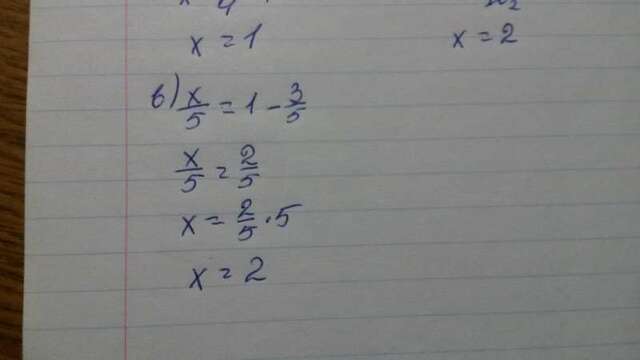 x = 1
x = 2
в) x/5 = 1 - 3/5
x/5 = 2/5
x = 2/5 · 5
x = 2